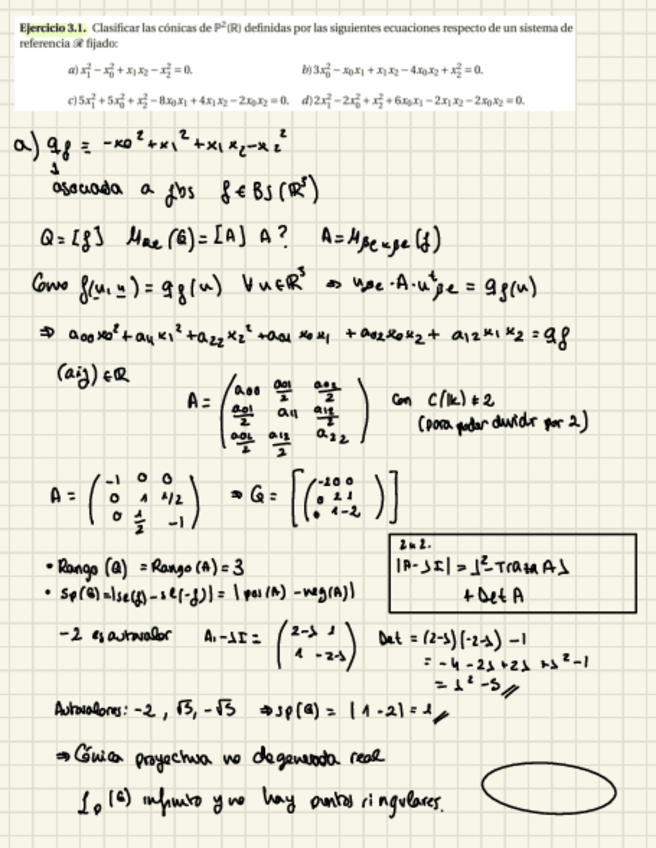 Ejercicio 3.1. Clasificar las cónicas de ℙ²(ℝ) definidas por las siguientes ecuaciones respecto de un sistema de
referencia ℛ fijado:
a) x₁² − x₀² + x₁x₂ − x₂² = 0. b) 3x₀² − x₀x₁ + x₁x₂ − 4x₀x₂ + x₂² = 0.
c) 5x₁² + 5x₀² + x₂² − 8x₀x₁ + 4x₁x₂ − 2x₀x₂ = 0. d) 2x₁² − 2x₀² + x₂² + 6x₀x₁ − 2x₁x₂ − 2x₀x₂ = 0.
a) qf = −x0² + x1² + x1 x2 − x2²
asociada a fbs f ∈ BS(ℝ³)
Q = [f] M_Re(Q) = [A] A? A = M_βe×βe(f)
Como f(u, u) = qf(u) ∀u ∈ ℝ³ ⇒ uβe · A · uᵗβe = qf(u)
⇒ a00 x0² + a11 x1² + a22 x2² + a01 x0 x1 + a02 x0 x2 + a12 x1 x2 = qf
(aij) ∈ ℝ
A = ( a00 a01/2 a02/2
a01/2 a11 a12/2
a02/2 a12/2 a22 )
Con C(lk) ≠ 2
(para poder dividir por 2)
A = ( -1 0 0
0 1 1/2
0 1/2 -1 ) ⇒ Q = [ ( -2 0 0
0 2 1
0 1 -2 ) ]
• Rango (Q) = Rango (A) = 3
• Sp(Q) = |se(f) − se(-f)| = | pos(A) − neg(A)|
2x2.
|A-λI| = λ² - Traza A λ
+ Det A
-2 es autovalor A₁-λI = ( 2-λ 1
1 -2-λ ) Det = (2-λ)(-2-λ) -1
= -4 -2λ +2λ +λ² -1
= λ² -5
Autovalores: -2, √5, -√5 ⇒ Sp(Q) = | 1 - 2| = 1
⇒ Cónica proyectiva no degenerada real
(Q) infinito y no hay puntos singulares.